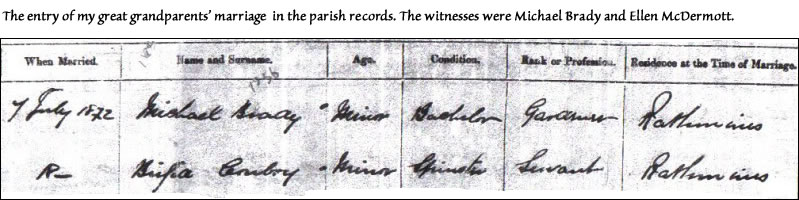 The entry of my great grandparents' marriage in the parish records. The witnesses were Michael Brady and Ellen McDermott.
When Married. Name and Surname. Age. Condition. Rank or Profession. Residence at the Time of Marriage.
7 July 1872 Michael Brady Minor Bachelor Gardener Rathmines
Minor Spinster Servant Rathmines